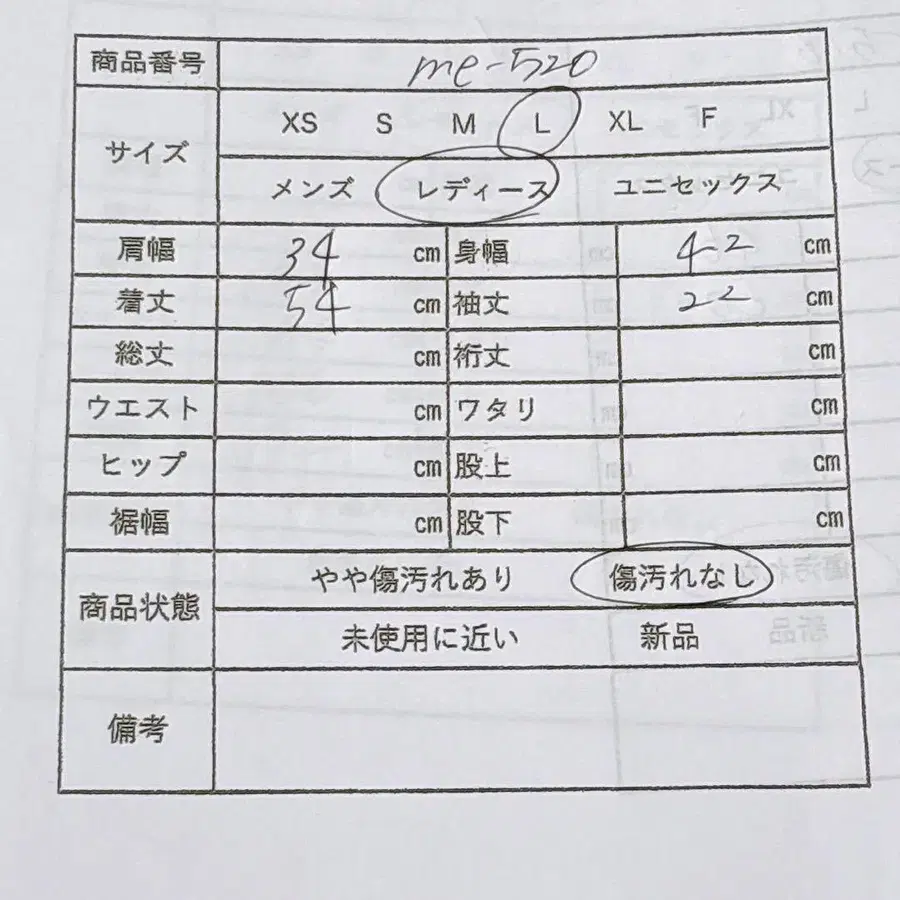 商品番号 me-520
サイズ XS S M L XL F
メンズ レディース ユニセックス
肩幅 34 cm 身幅 42 cm
着丈 54 cm 袖丈 22 cm
総丈 cm 裄丈 cm
ウエスト cm ワタリ cm
ヒップ cm 股上 cm
裾幅 cm 股下 cm
商品状態 やや傷汚れあり 傷汚れなし
未使用に近い 新品
備考